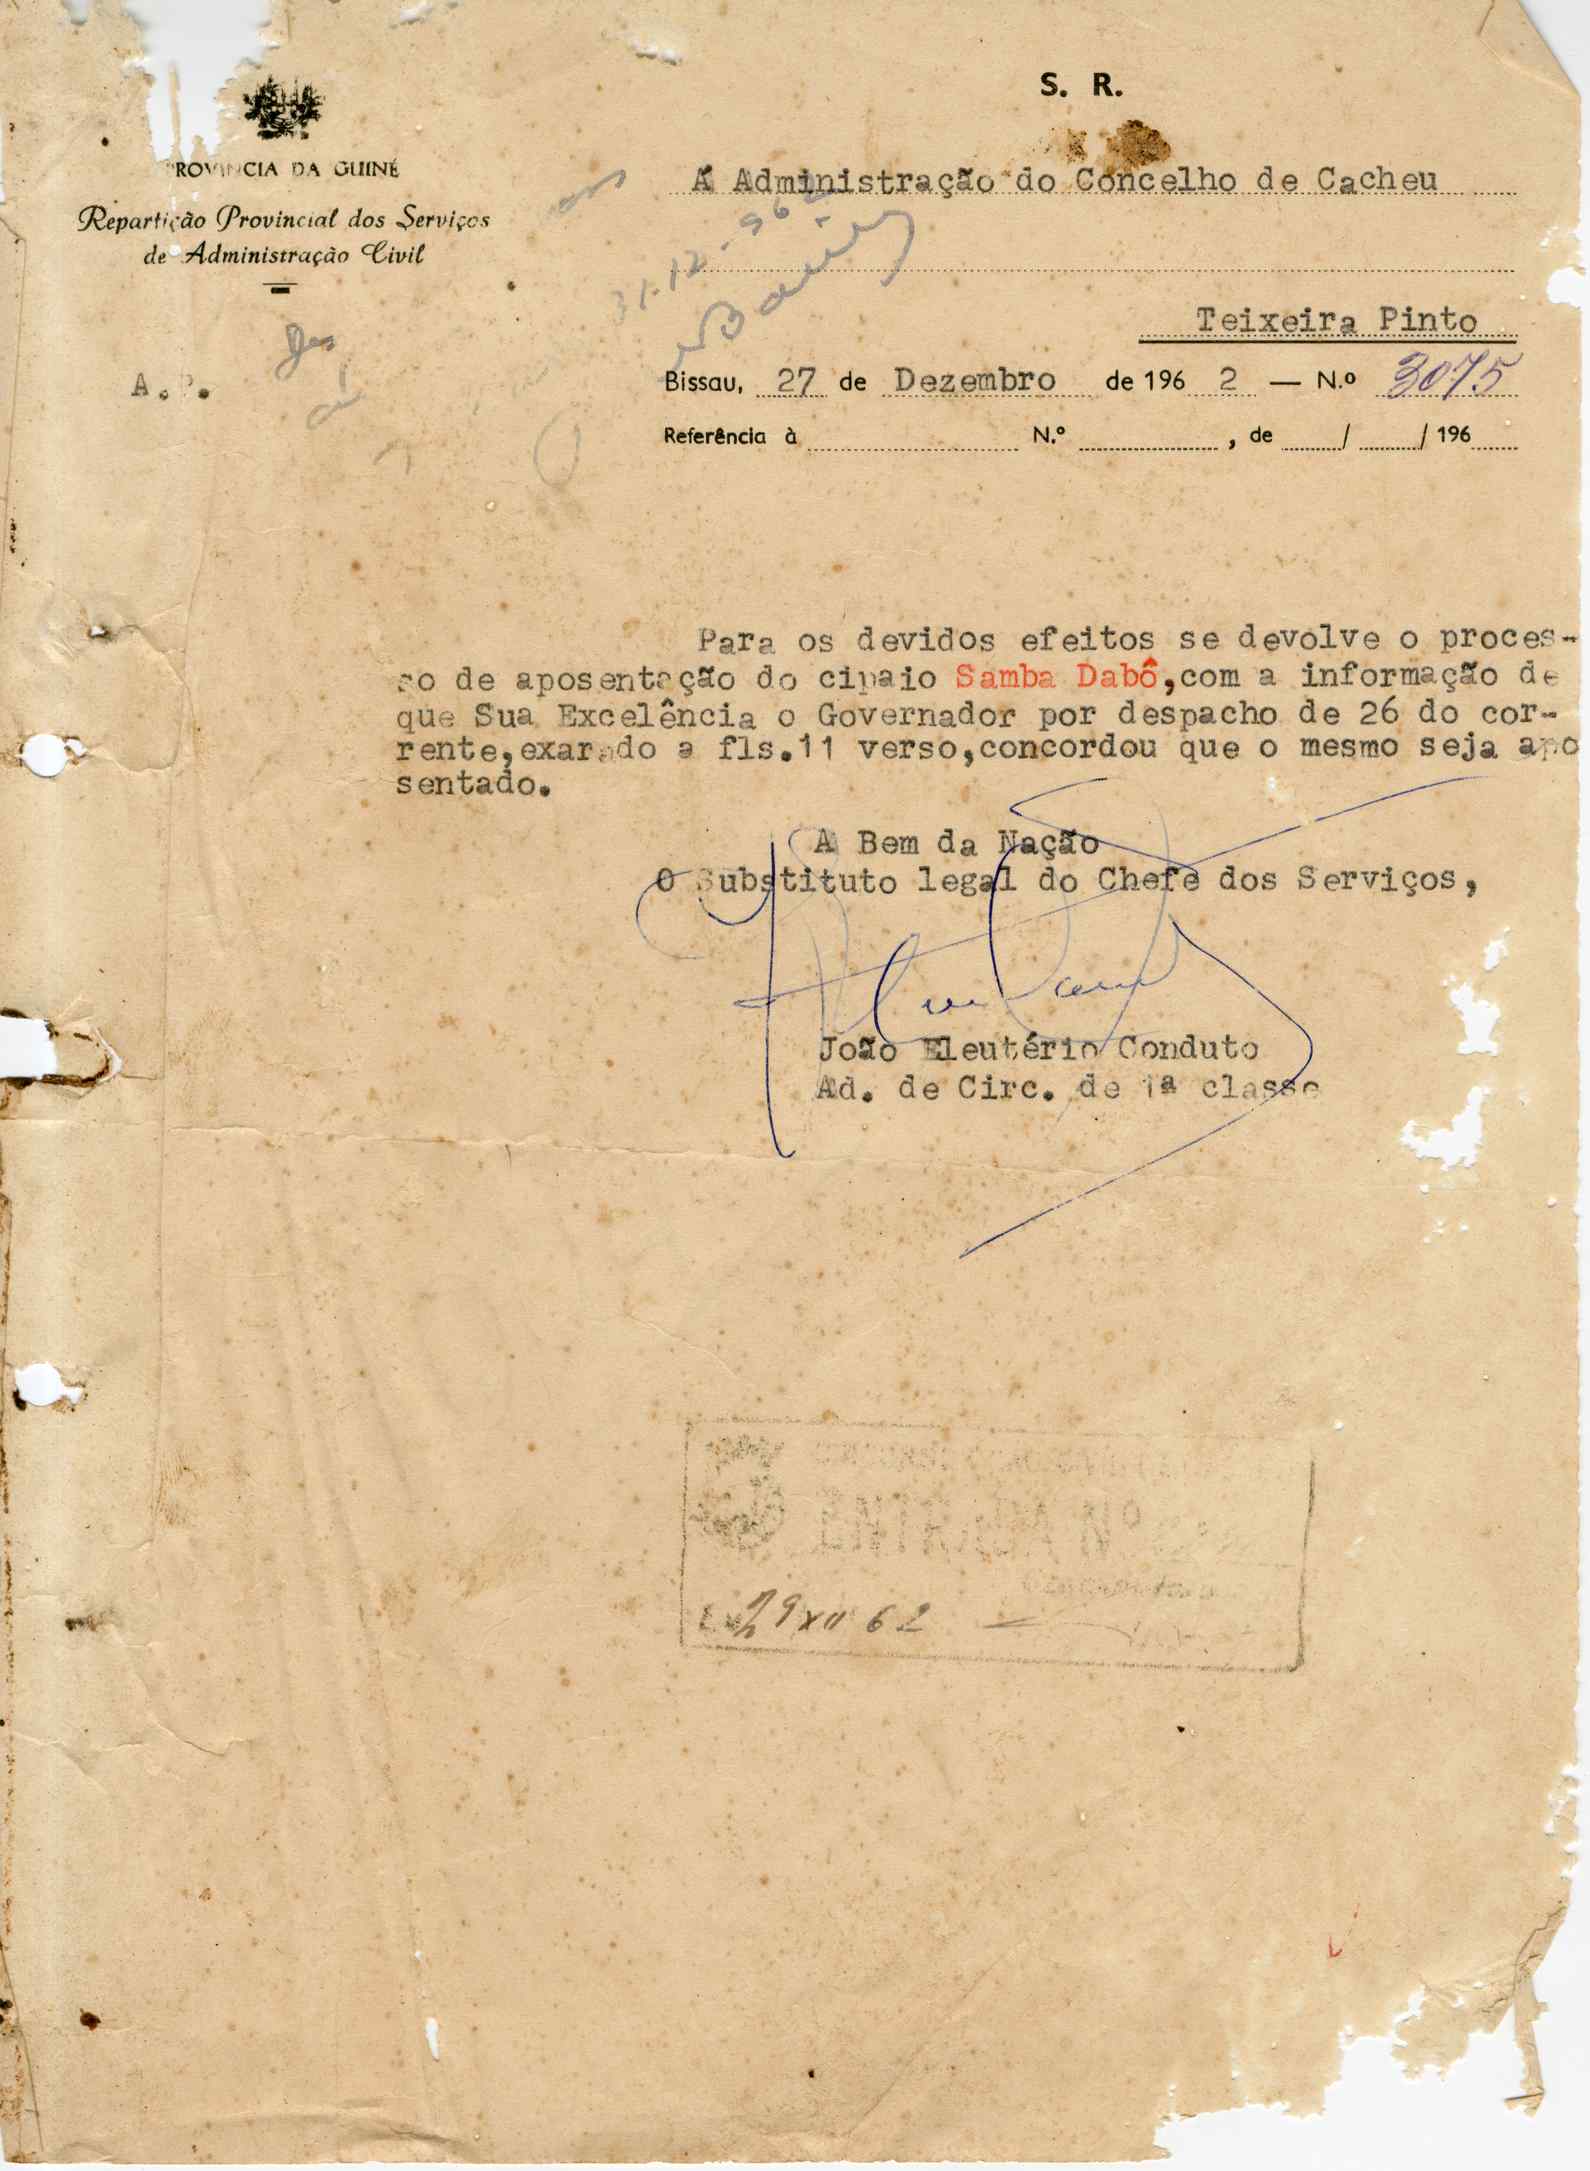 S. R.
PROVINCIA DA GUINÉ
Repartição Provincial dos Serviços
de Administração Civil
A.P.
Á Administração do Concelho de Cacheu
31-12-962
Teixeira Pinto
Bissau, 27 de Dezembro de 196 2 — N.º 3075
Referência à N.º , de / / 196
Para os devidos efeitos se devolve o proces-
so de aposentação do cipaio Samba Dabô,com a informação de
que Sua Excelência o Governador por despacho de 26 do cor-
rente,exarado a fls.11 verso,concordou que o mesmo seja apo
sentado.
A Bem da Nação
O Substituto legal do Chefe dos Serviços,
João Eleutério Conduto
Ad. de Circ. de 1ª classe
ENTRADA N.º
29 XII 62